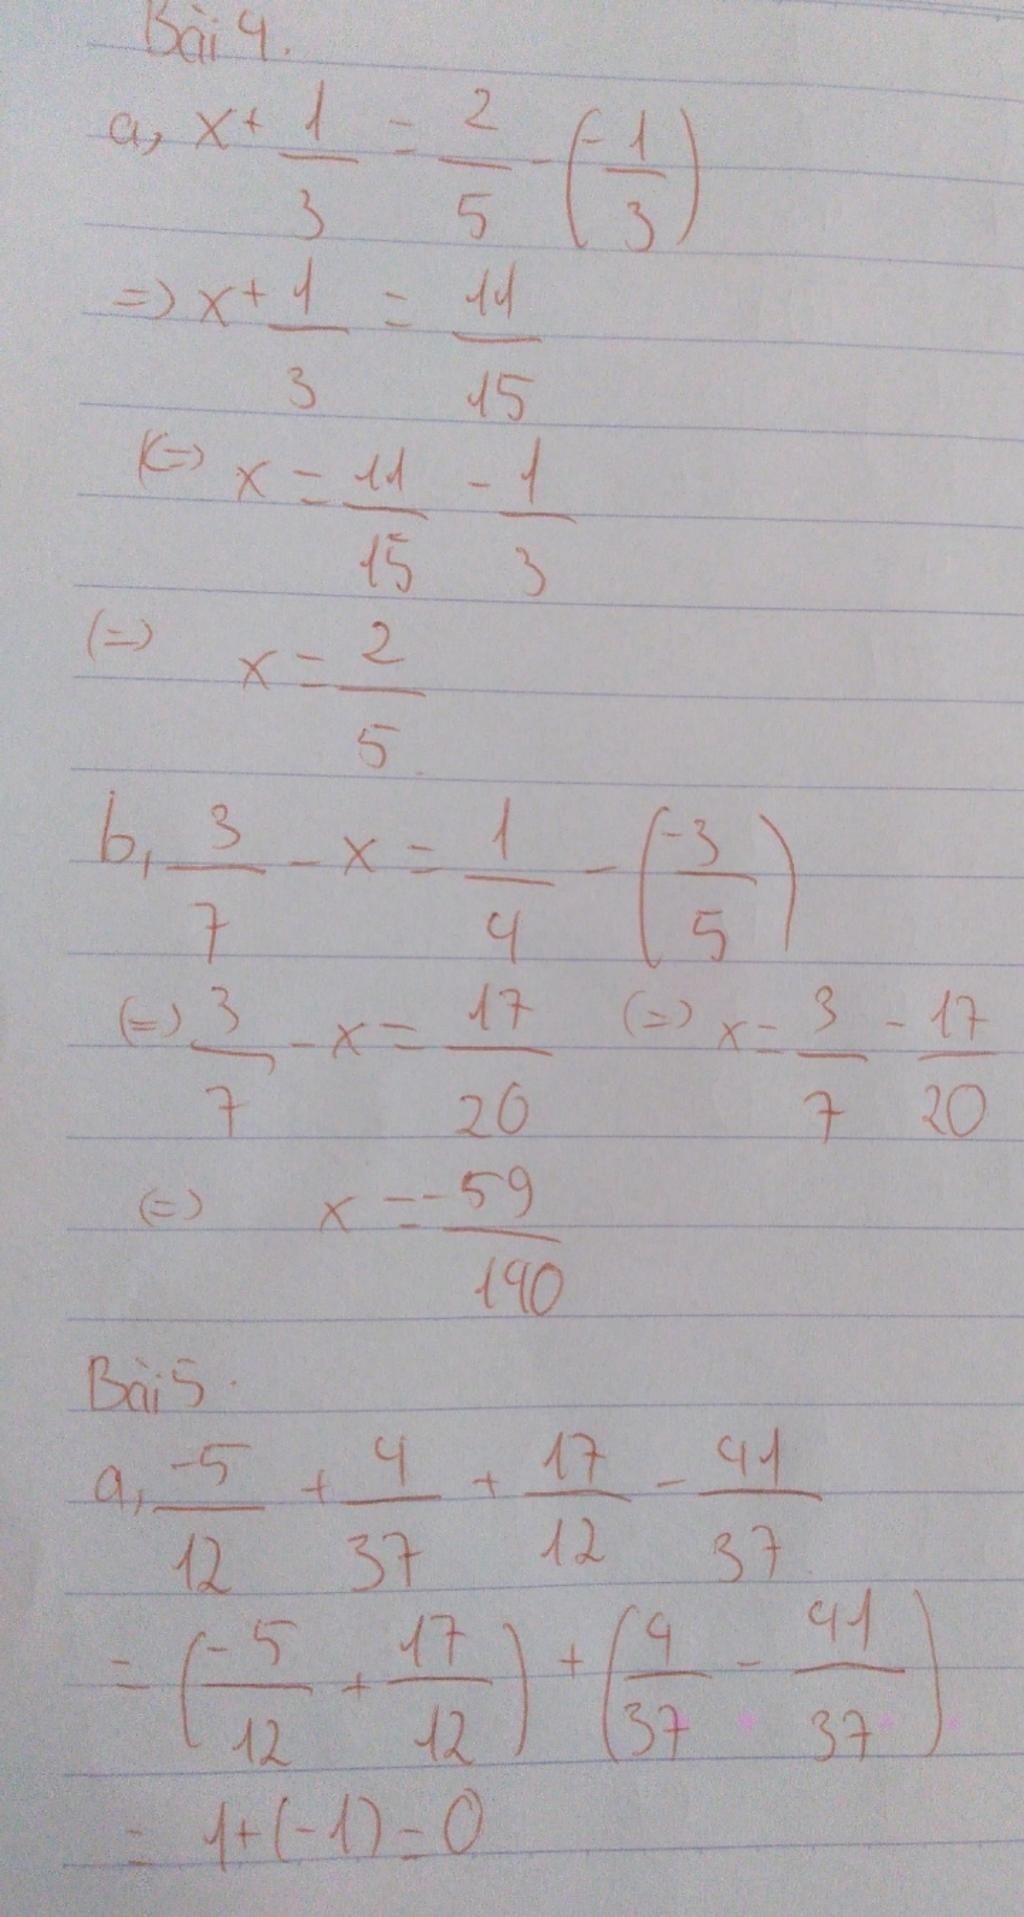 Bài 4.
a, x + 1/3 = 2/5 - (-1/3)
=> x + 1/3 = 11/15
(=> x = 11/15 - 1/3
(=) x = 2/5.
b, 3/7 - x = 1/4 - (-3/5)
(=) 3/7 - x = 17/20 (=) x = 3/7 - 17/20
(=) x = -59/140
Bài 5.
a, -5/12 + 4/37 + 17/12 - 41/37
= (-5/12 + 17/12) + (4/37 - 41/37)
= 1 + (-1) = 0